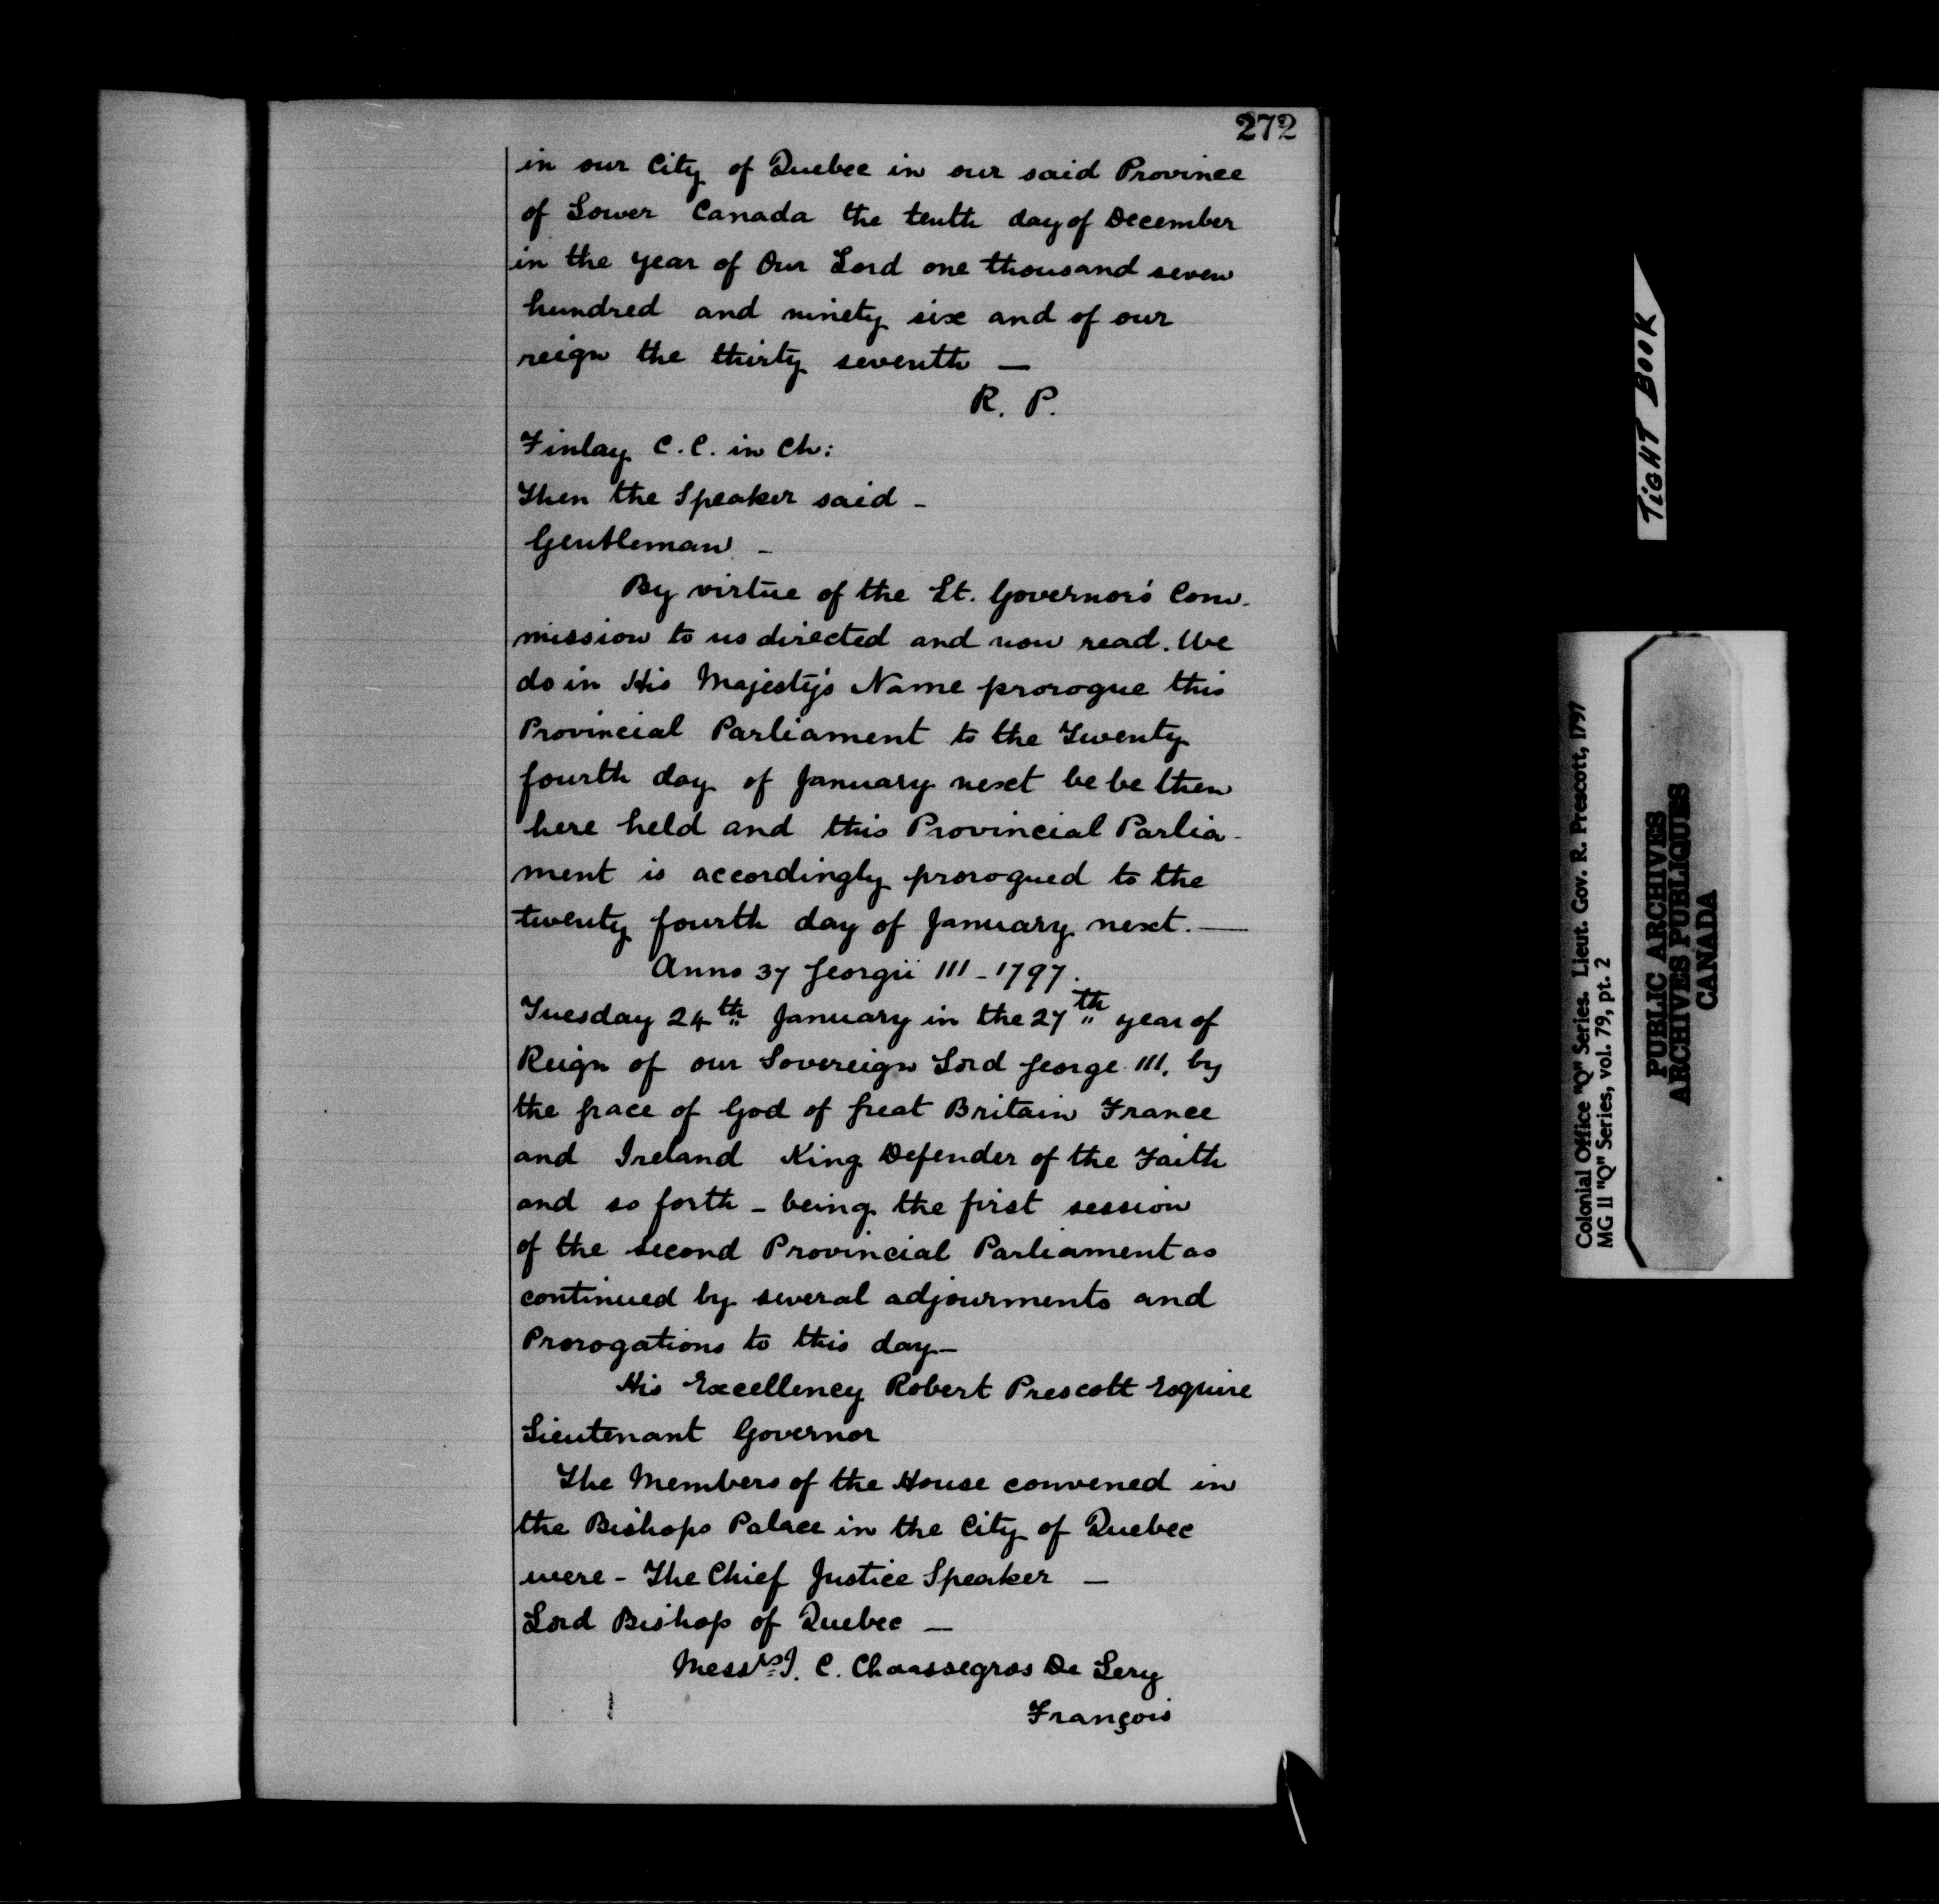 272
in our City of Quebec in our said Province
of Lower Canada the tenth day of December
in the year of Our Lord one thousand seven
hundred and ninety six and of our
reign the thirty seventh —
R. P.
Finlay C. C. in Ch:
Then the Speaker said -
Gentleman -
By virtue of the Lt. Governor's Com-
mission to us directed and now read. We
do in His Majesty's Name prorogue this
Provincial Parliament to the Twenty
fourth day of January next be be then
here held and this Provincial Parlia-
ment is accordingly prorogued to the
twenty fourth day of January next. —
Anno 37 Georgii III - 1797.
Tuesday 24th January in the 27th year of
Reign of our Sovereign Lord George III. by
the grace of God of Great Britain France
and Ireland King Defender of the Faith
and so forth - being the first session
of the second Provincial Parliament as
continued by several adjourments and
Prorogations to this day —
His Excellency Robert Prescott Esquire
Lieutenant Governor
The Members of the House convened in
the Bishops Palace in the City of Quebec
were - The Chief Justice Speaker —
Lord Bishop of Quebec —
Messrs J. C. Chaussegros De Lery
François
TIGHT BOOK
Colonial Office "Q" Series. Lieut. Gov. R. Prescott, 1797
MG 11 "Q" Series, vol. 79, pt. 2
PUBLIC ARCHIVES
ARCHIVES PUBLIQUES
CANADA